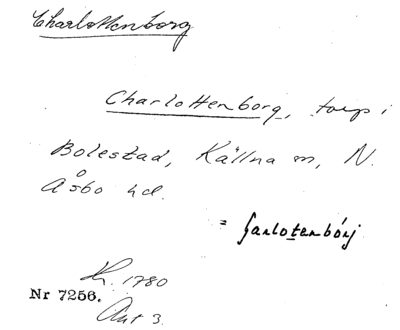 Charlottenborg
Charlottenborg, torp i
Bolestad, Källna sn, N.
Åsbo hd.
= šarlotenbórj
R. 1780
Nr 7256.
Ant 3.